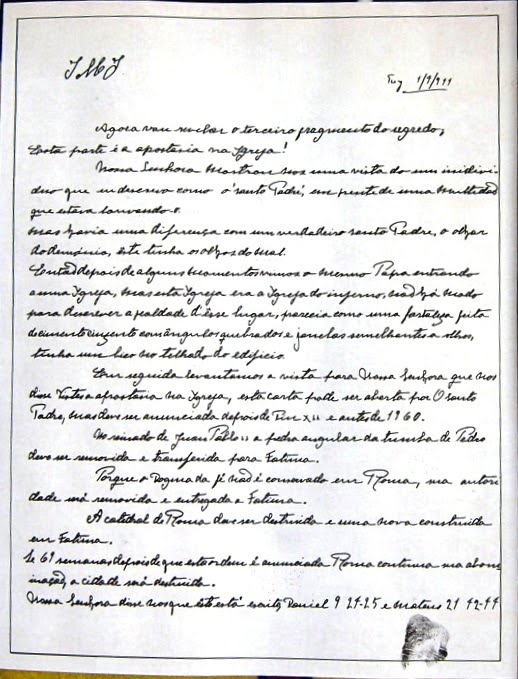 J M J
Tuy 1/9/944
Agora vou revelar o terceiro fragmento do segredo;
Esta parte é a apostasia na Igreja!
Nossa Senhora mostrou nos uma vista do um individ
duo que eu descrevo como o 'santo Padre', em frente de uma multidão
que estava louvando-o.
Mas havia uma diferença com um verdadeiro santo Padre, o olhar
do demónio, este tinha os olhos do mal.
Então depois de alguns momentos vimos o mesmo Papa entrando
a uma Igreja, mas esta Igreja era a Igreja do inferno, não há modo
para descrever a fealdade d'esse lugar, parecia como uma fortaleza feita
de cimento cinzento com ângulos quebrados e janelas semelhantes a olhos,
tinha um bico no telhado do edifício.
Em seguida levantamos a vista para Nossa Senhora que nos
disse Vistes a apostasia na Igreja, esta carta pode ser aberta por O santo
Padre, mas deve ser anunciada depois de Pio XII e antes de 1960.
No reinado de Juan Pablo II a pedra angular da tumba de Pedro
deve ser removida e transferida para Fatima.
Porque o Dogma da fé não é conservado em Roma, sua autori
dade será removida e entregada a Fatima.
A catedral de Roma deve ser destruida e uma nova construida
em Fatima.
Se 69 semanas depois de que esta ordem é anunciada Roma continua sua abom
inação, a cidade será destruida.
Nossa Senhora disse nos que este está escrito, Daniel 9 24-25 e Mateus 21 42-44